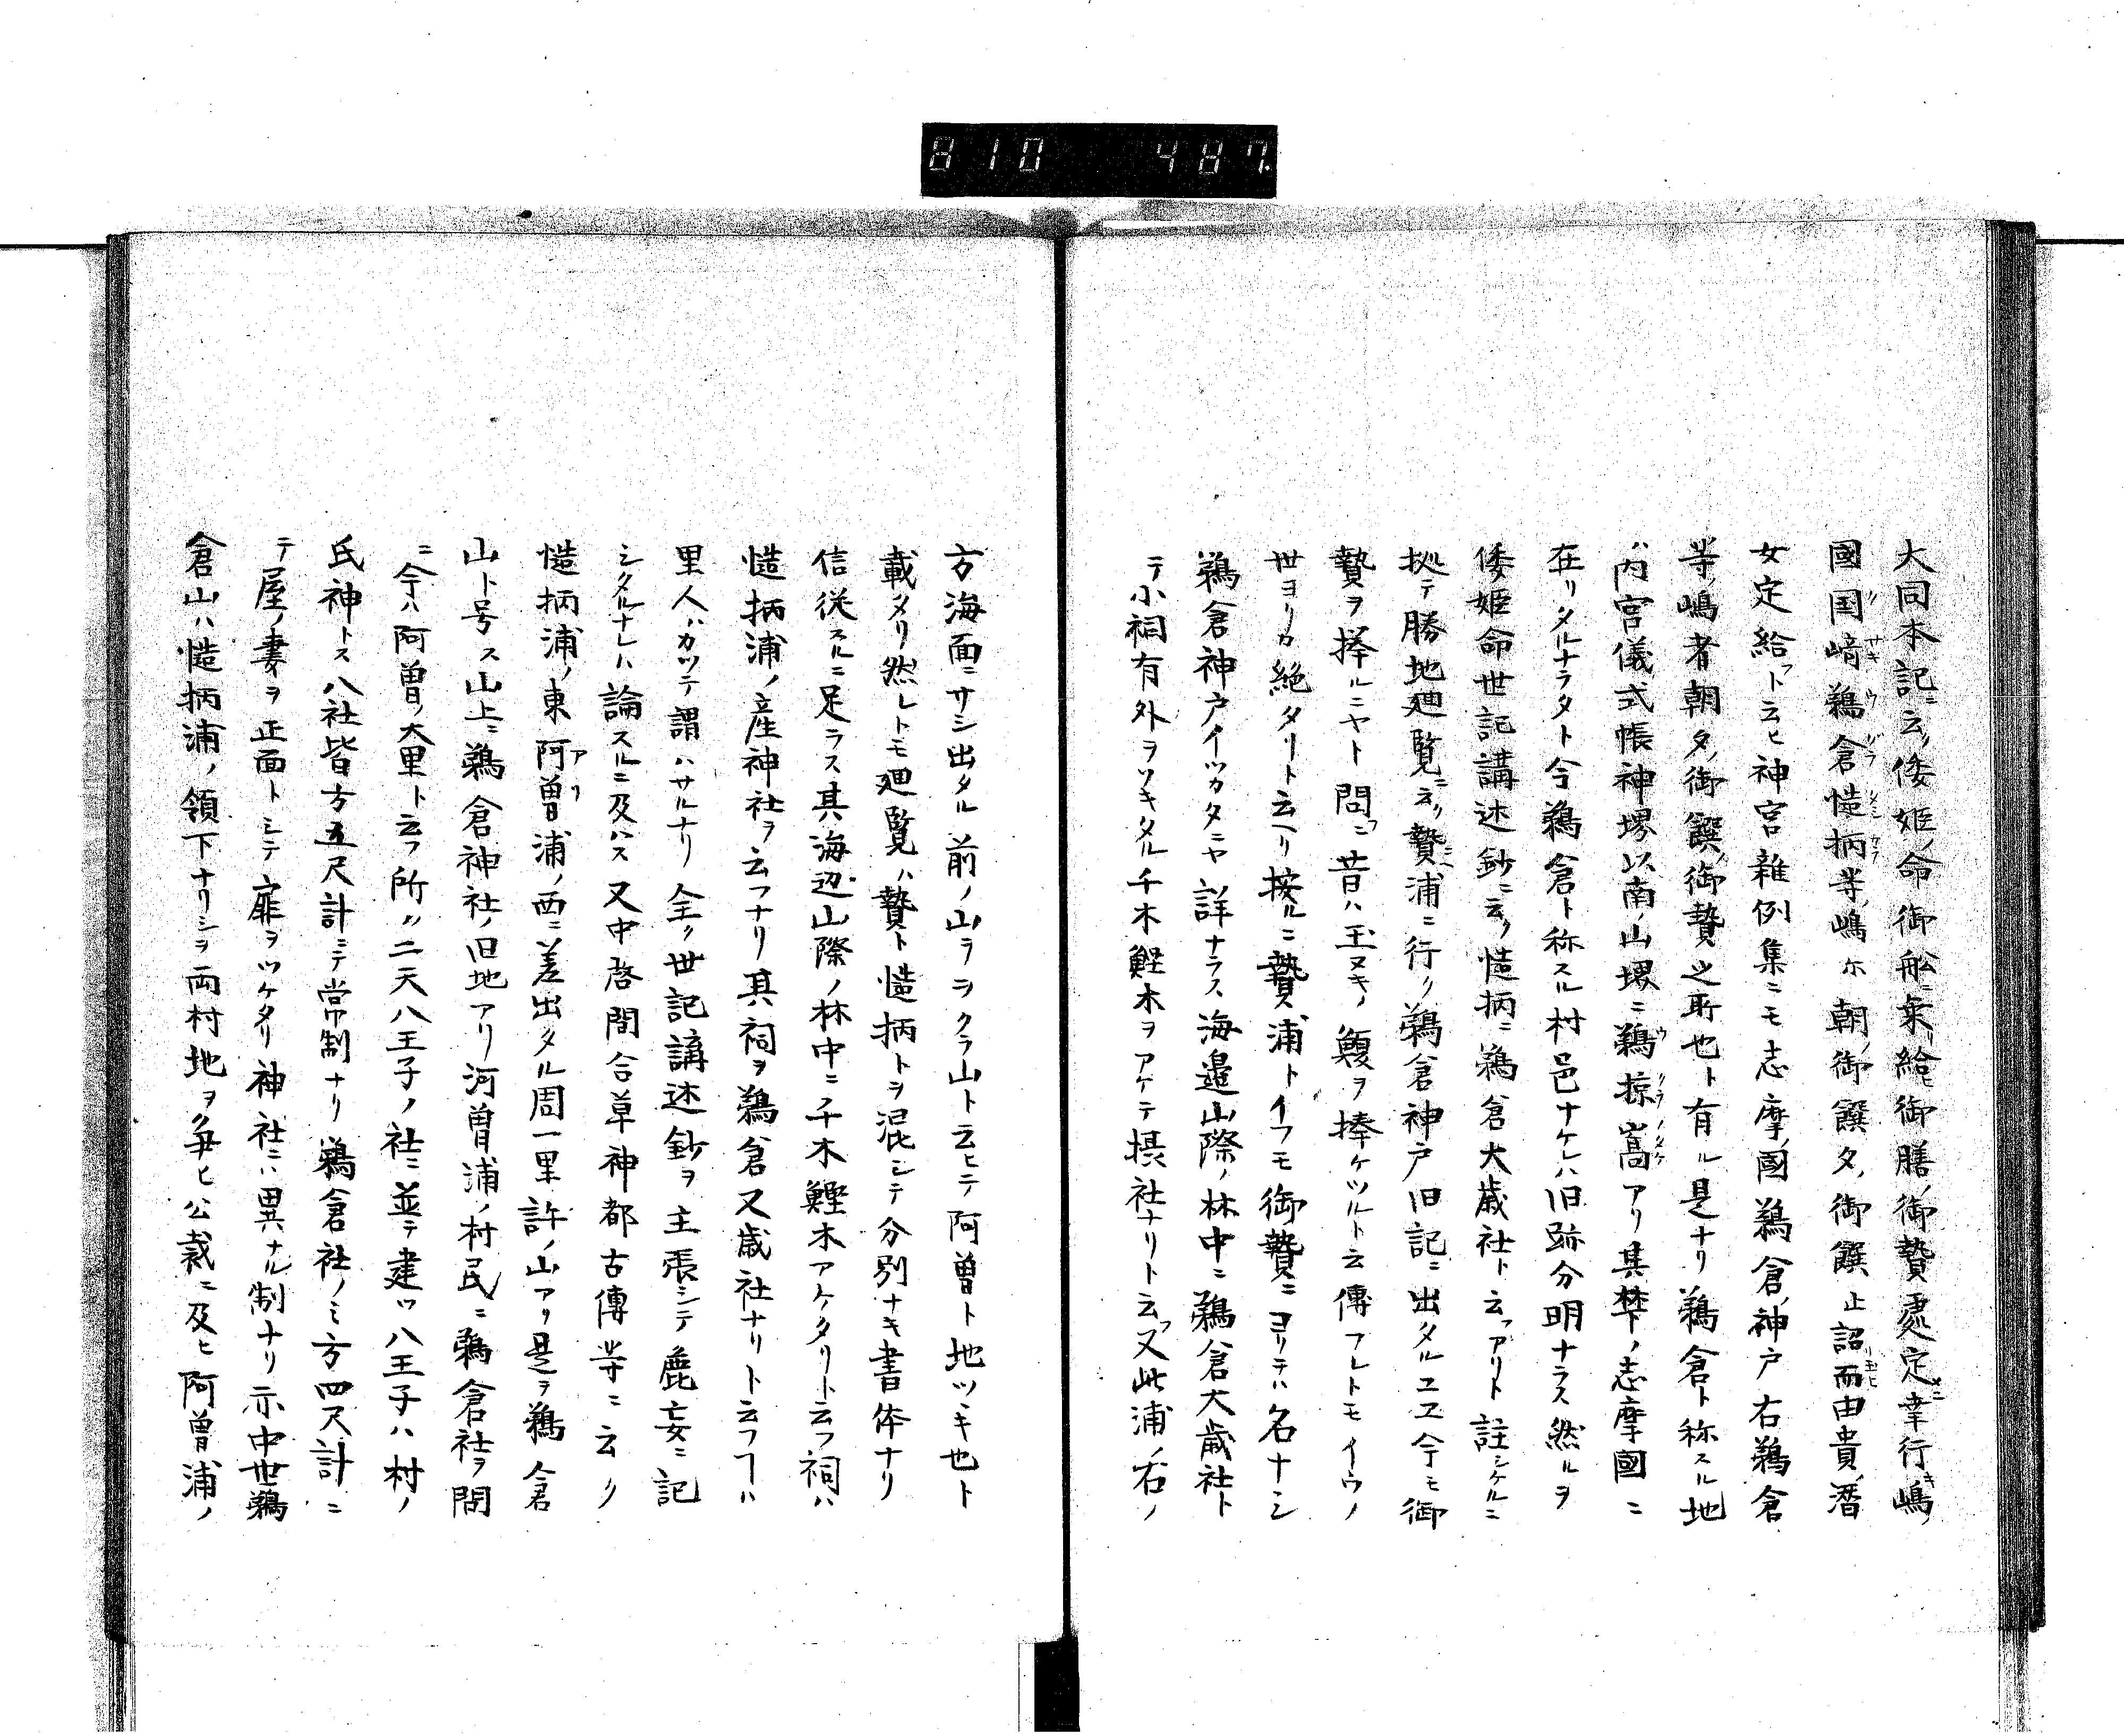 810 487.
大同本記ニ云ク倭姫ノ命御舩ニ乗リ給ヒ御膳ノ御贄處定メニ幸行キ嶋ノ
國国﨑鵜倉慥柄等ノ嶋ホ朝ノ御饌夕ノ御饌止詔而由貴ノ潜
女定給フト云ヒ神宮雜例集ニモ志摩ノ國鵜倉ノ神戸右鵜倉
等ノ嶋者朝夕ノ御饌ノ御贄之所也ト有ル是ナリ鵜倉ト称スル地
ハ内宮儀式帳神堺以南ノ山堺ニ鵜掠嵩アリ其梺ノ志摩國ニ
在リタルナラタト今鵜倉ト称スル村邑ナケレハ旧跡分明ナラス然ルヲ
倭姫命世記講述鈔ニ云ク慥柄ニ鵜倉大歳社ト云フアリト註シケルニ
拠テ勝地廻覧ニ云ク贄浦ニ行ク鵜倉神戸旧記ニ出タルユヱ今モ御
贄ヲ捧ルニヤト問フニ昔ハ玉ヌキノ鰒ヲ捧ケツルト云傳フレトモイウノ
世ヨリカ絶タリト云ヘリ按ルニ贄浦トイフモ御贄ニヨリテハ名ナシ
鵜倉神戸イツカタニヤ詳ナラス海邉山際ノ林中ニ鵜倉大歳社ト
テ小祠有外ヲソキタル千木鰹木ヲアケテ摂社ナリト云フ又此浦ノ右ノ
方海面ニサシ出タル前ノ山ラヲクラ山ト云ヒテ阿曽ト地ツヽキ也ト
載タリ然レトモ廻覧ハ贄ト慥柄トヲ混シテ分別ナキ書体ナリ
信従スルニ足ラス其海辺山際ノ林中ニ千木鰹木アケタリト云フ祠ハ
慥柄浦ノ産神社ラ云フナリ其祠ヲ鵜倉又歳社ナリト云フヿハ
里人ハカツテ謂ハサルナリ全ク世記講述鈔ヲ主張シテ麁妄ニ記
シタルナレハ論スルニ及ハス又中啓間合草神都古傳等ニ云ク
慥柄浦ノ東阿曽浦ノ西ニ差出タル周一里許ノ山アリ是ヲ鵜倉
山ト号ス山上ニ鵜倉神社ノ旧地アリ河曽浦ノ村民ニ鵜倉社ヲ問
ニ今ハ阿曽ノ大里ト云フ所ノ二天八王子ノ社ニ並テ建ツ八王子ハ村ノ
氏神トス八社皆方五尺計ニテ常制ナリ鵜倉社ノミ方四尺計ニ
テ屋ノ妻ヲ正面トシテ扉ヲツケタリ神社ニハ異ナル制ナリ示中世鵜
倉山ハ慥柄浦ノ領下ナリシヲ両村地ヲ争ヒ公裁ニ及ヒ阿曽浦ノ